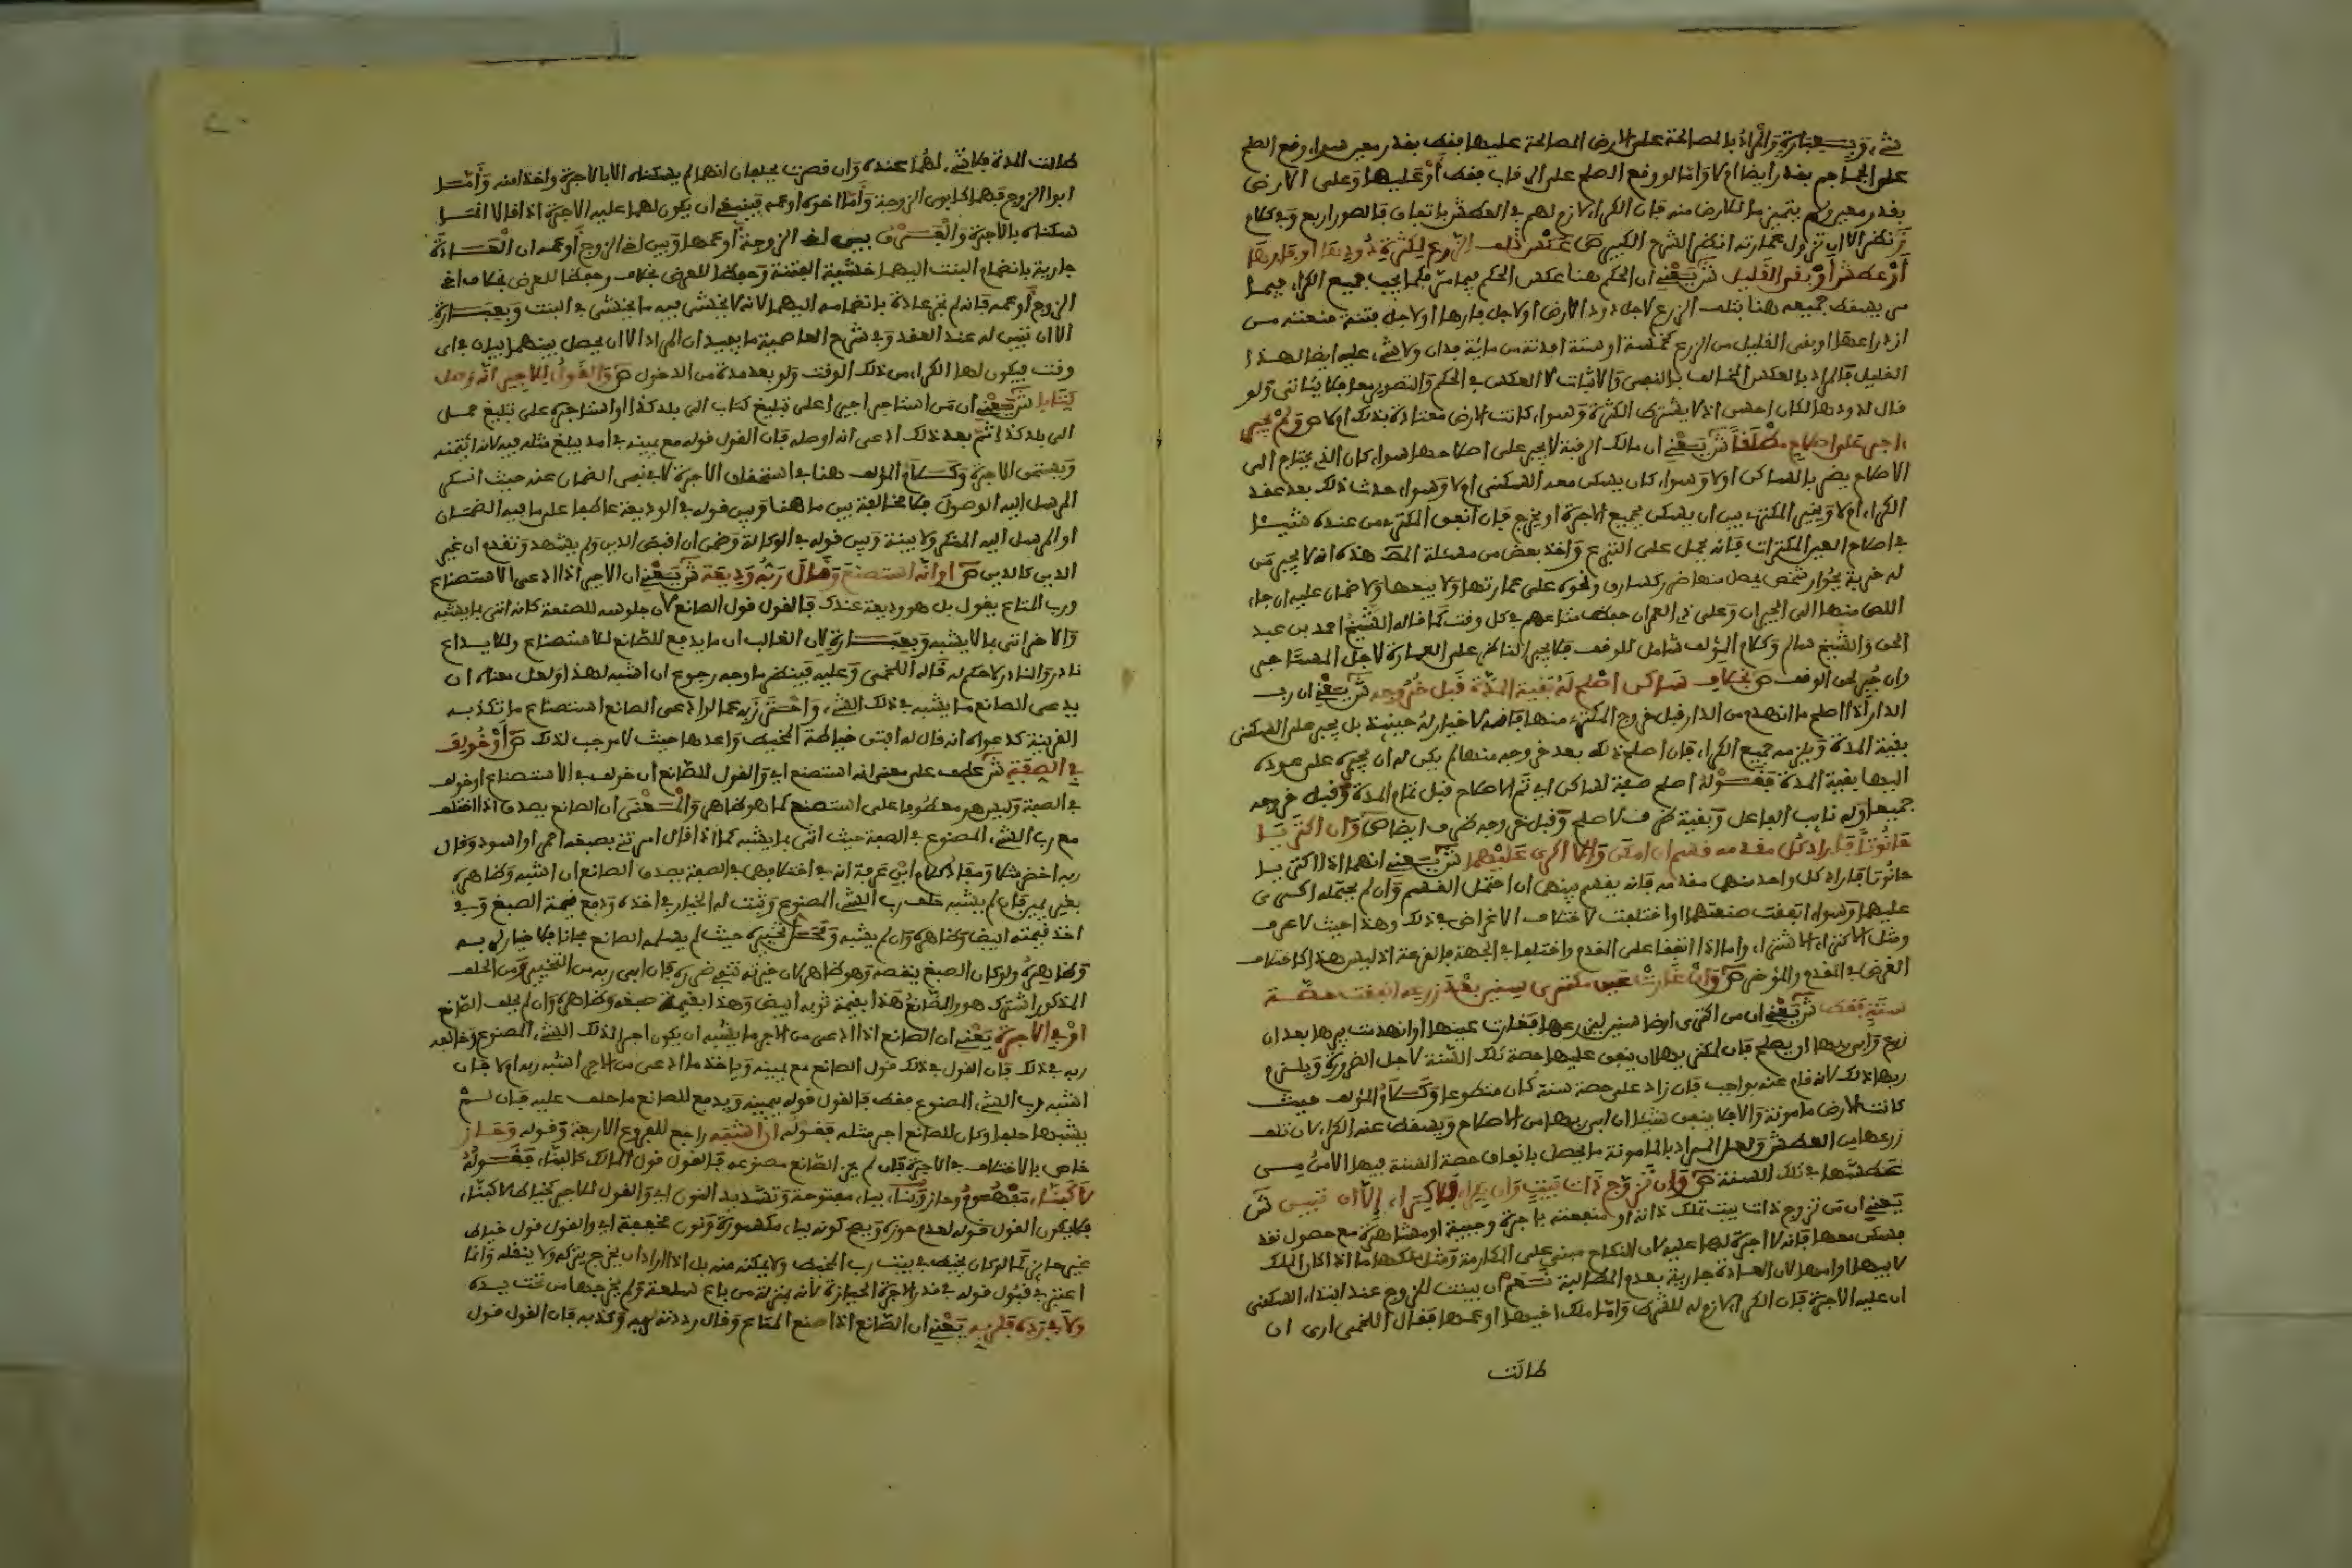 شيء وبعبارة والمراد بالمصالحة على الارض المصالحة عليها فقط بقدر معين سواء وقع الصلح
على الجماجم بقدر ايضا ام لا واما لو وقع الصلح على الرقاب فقط او عليها وعلى الارض
بقدر معين ولم يتميز ما للارض منه فان الكراء لازم لهم في العطش باتفاق فالصور اربع وفي كلام
ز نظر الا ان تؤول عبارته انظر الشرح الكبير ص عكس تلف الزرع لكثرة دودها او فارها
او عطش او بقي القليل ش يعني ان الحكم هنا عكس الحكم فيما مر فكما يجب جميع الكراء فيما
مر يسقط جميعه هنا بتلف الزرع لاجل دود الارض او لاجل فارها او لاجل فتنة منعته من
ازدراعها او بقي القليل من الزرع كخمسة او ستة افدنة من ماية فدان ولا شيء عليه ايضا لهذا
القليل فالمراد بالعكس المخالف بالنفي والاثبات لا العكس في الحكم والتصوير معا فلا ينافي ولو
قال لدودها لكان احسن اذ لا يشترط الكثرة وسواء كانت الارض معتادة بذلك ام لا ص ولم يجبر
اجر على اصلاح مطلقا ش يعني ان مالك الرقبة لا يجبر على اصلاحها سواء كان الذي يحتاج الى
الاصلاح يضر بالساكن اولا وسواء كان يمكن معه السكنى ام لا وسواء حدث ذلك بعد عقد
الكراء ام لا ويخير المكتري بين ان يسكن بجميع الاجرة او يخرج فان انفق المكتري من عنده شيئا
في اصلاح العين المكتراة فانه يحمل على التبرع واخذ بعض من مسئلة المص هذه انه لا يجبر من
له خربة بجوار شخص يحصل منها ضرر كسارق ونحوه على عمارتها ولا بيعها ولا ضمان عليه ان جاء
اللص منها الى الجيران وعلى ذي العمران حفظ متاعهم في كل وقت كما قاله الشيخ احمد بن عبد
الحق والشيخ سالم وكلام المؤلف شامل للوقف فلا يجبر الناظر على العمارة لاجل المستاجر
وان جبر لحق الوقف ص بخلاف ساكن اصلح له بقية المدة قبل خروجه ش يعني ان رب
الدار اذا اصلح ما انهدم من الدار قبل خروج المكتري منها فانه لا خيار له حينئذ بل يجبر على السكنى
بقية المدة ويلزمه جميع الكراء فان اصلح ذلك بعد خروجه منها لم يكن له ان يجبره على عوده
اليها بقية المدة فقوله اصلح صفة لساكن اي تم الاصلاح قبل تمام المدة وقبل خروجه
جميعها وله نايب الفاعل وبقية ظرف لاصلح وقبل خروجه ظرف ايضا ص وان اكتريا
حانوتا فاراد كل مقدمه قسم ان امكن والا اكري عليهما ش يعني انهما اذا اكتريا
حانوتا فاراد كل واحد منهما مقدمه فانه يقسم بينهما ان احتمل القسم وان لم يحتمله اكري
عليهما وسواء اتفقت صنعتهما او اختلفت لاختلاف الاغراض في ذلك وهذا حيث لا عرف
ومثل الاكتراء الاشتراء واما اذا اتفقا على المقدم واختلفا في الجهة فالقرعة اذ ليس هذا كاختلاف
الغرض في المقدم والمؤخر ص وان غارت عين مكتري سنين بعد زرعه انفقت حصة
سنة فقط ش يعني ان من اكترى ارضا سنين ليزرعها فغارت عينها او انهدمت بيرها بعد ان
زرع وابى ربها ان يصلح فان لمكتريها ان ينفق عليها حصة تلك السنة لاجل الضرورة ويلزم
ربها ذلك لانه قام عنه بواجب فان زاد على حصة سنة كان متطوعا وكلام المؤلف حيث
كانت الارض مامونة والا فلا ينفق شيئا ان ابى ربها من الاصلاح ويسقط عنه الكراء لان تلف
زرعها من العطش ولعل المراد بالمامونة ما يحصل بانفاق حصة السنة فيها الامن من
عطشها في تلك السنة ص وان تزوج ذات بيت وان بكراء فلا كراء الا ان تبين ش
يعني ان من تزوج ذات بيت تملك ذاته او منفعته باجرة وجيبة او مشاهرة مع حصول نقد
فسكن معها فانه لا اجرة لها عليه لان النكاح مبني على المكارمة ومثل ملكها ما اذا كان الملك
لابيها او امها لان العادة جارية بعدم المطالبة نعم ان بينت للزوج عند ابتداء السكنى
ان عليه الاجرة فان الكراء لازم له للشرط واما ملك اخيها او عمها فقال اللخمي ارى ان
طالت
طالت المدة فلا شيء لهما عنده وان قصرت يحلفان انهما لم يسكناه الا بالاجرة واخذا منه واما
ابوا الزوج فهما كابوي الزوجة واما اخوه او عمه فينبغي ان يكون لهما عليه الاجرة اذا قالا انما
سكناه بالاجرة والفرق بين اخ الزوجة او عمها وبين اخ الزوج او عمه ان العادة
جارية بانضمام البنت اليهما خشية الفتنة وحفظا للعرض بخلاف
الزوج او عمه فانه لم تجر عادة بانضمامه اليهما لانه لا يخشى فيه ما يخشى في البنت وبعبارة
الا ان تبين له عند العقد وفي شرح العاصمية ما يفيد ان المراد الا ان يحصل بينهما بيان في اي
وقت فيكون لها الكراء من ذلك الوقت ولو بعد مدة من الدخول ص والقول للاجير انه وصل
كتابا ش يعني ان من استاجر اجيرا على تبليغ كتاب الى بلد كذا او استاجره على تبليغ حمل
الى بلد كذا ثم بعد ذلك ادعى انه اوصله فان القول قوله مع يمينه في امد يبلغ مثله فيه لانه ائتمنه
ويستحق الاجرة وكلام المؤلف هنا في استحقاق الاجرة لا في نفي الضمان عنه حيث انكر
المرسل اليه الوصول فلا مخالفة بين ما هنا وبين قوله في الوديعة عاطفا على ما فيه الضمان
او المرسل اليه المنكر ولا بينة وبين قوله في الوكالة وضمن ان اقبض الدين ولم يشهد وتقدم ان غير
الدين كالدين ص او انه استصنع وقال ربه وديعة ش يعني ان الاجير اذا ادعى الاستصناع
ورب المتاع يقول بل هو وديعة عندك فالقول قول الصانع لان جلوسه للصنعة كانه اتى بما يشبه
والاخر اتى بما لا يشبه وبعبارة لان الغالب ان ما يدفع للصانع للاستصناع ولايداع
نادر والنادر لا حكم له قاله اللخمي وعليه فينظر ما وجه رجوع ان اشبه لهذا ولعل معناه ان
يدعي الصانع ما يشبه في ذلك الشيء واحترز به عما اذا ادعى الصانع استصناع ما تكذبه
القرينة كدعواه انه قال له ابتى خياطة المخيط واعدها حيث لا موجب لذلك ص او خولف
في الصفة ش عطف على معنى انه استصنع اي والقول للصانع ان خولف في الاستصناع او خولف
في الصفة وليس هو معطوفا على استصنع كما هو ظاهر والمعنى ان الصانع يصدق اذا اختلف
مع رب الشيء المصنوع في الصفة حيث اتى بما يشبه كما اذا قال امرتني بصبغه احمر او اسود وقال
ربه اخضر مثلا ومفاد كلام ابن عرفة انه في اختلافهما في الصفة يصدق الصانع ان اشبه وظاهره
بغير يمين فان لم يشبه حلف رب الشيء المصنوع وثبت له الخيار في اخذه ودفع قيمة الصبغ وفي
اخذ قيمته ابيض وظاهره وان لم يشبه ومحل تخييره حيث لم يسلمه الصانع مجانا فلا خيار لربه
وظاهره ولو كان الصبغ ينقصه وهو ظاهر لان خيرته تنفي ضرره فان ابى ربه من التخيير ومن الحلف
المذكور اشترك هو والصانع هذا بقيمة ثوبه ابيض وهذا بقيمة صبغه وظاهره وان لم يحلف الصانع
او في الاجرة يعني ان الصانع اذا ادعى من الاجر ما يشبه ان يكون اجرا لذلك الشيء المصنوع وخالفه
ربه في ذلك فان القول في ذلك قول الصانع مع يمينه وياخذ ما ادعى من الاجر اشبه ربه ام لا فان
اشبه رب الشيء المصنوع فقط فالقول قوله بيمينه ويدفع للصانع ما حلف عليه فان لم
يشبها حلفا وكان للصانع اجر مثله فقوله ان اشبه راجع للفروع الاربعة وقوله وحاز
خاص بالاختلاف في الاجرة فان لم يحز الصانع مصنوعه فالقول قول المالك كالبناء فقوله
لا كبناء مفهوم وحاز وبناء بباء مفتوحة وتشديد النون اي والقول للاجير كخياط لا كبناء
فلا يكون القول قوله لعدم حوزه ويصح كونه بباء مكسورة ونون مخففة اي والقول قول خياط
غير حايز كما لو كان يخيط في بيت رب المخيط ولا يمكنه منه بل اذا اراد ان يخرج يتركه ولا ينقله وانما
اعتبر في قبول قوله في قدر الاجرة الحيازة لانه بمنزلة من باع سلعة ولم يخرجها من تحت يده
ولا في رده فلربه يعني ان الصانع اذا صنع المتاع وقال رددته لربه وكذبه فان القول قول